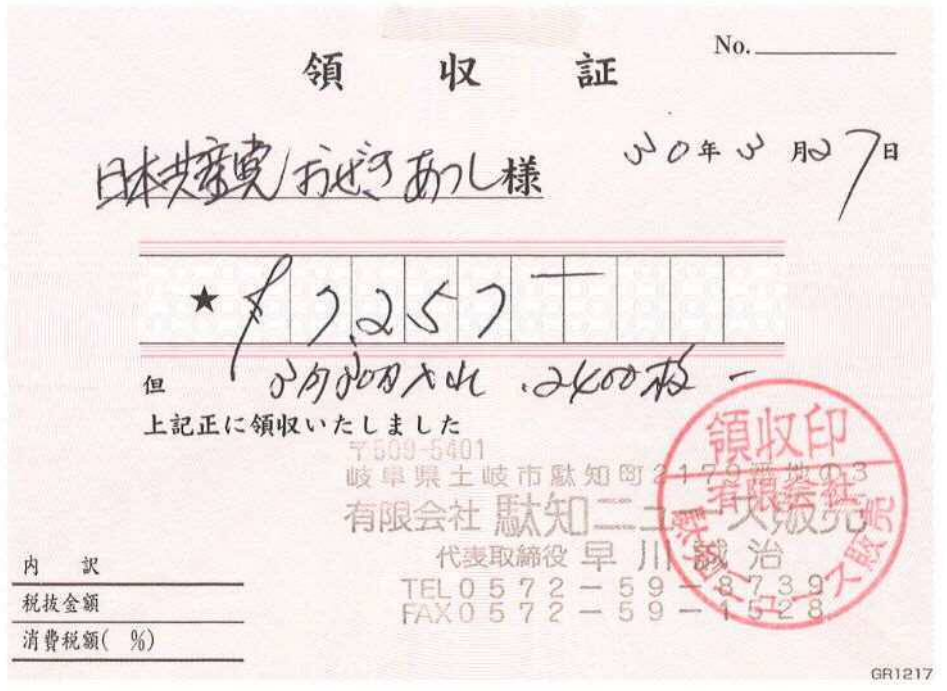 No.
領収証
日本共産党 おぜき あつし 様
30年3月27日
★ ¥7,257
但 3月30日入れ 2400枚
上記正に領収いたしました
〒509-5401
岐阜県土岐市駄知町2179番地の3
有限会社 駄知ニュース販売
代表取締役 早川誠治
TEL0572-59-8739
FAX0572-59-1528
領収印
有限会社
駄知ニュース販売
内訳
税抜金額
消費税額( %)
GR1217